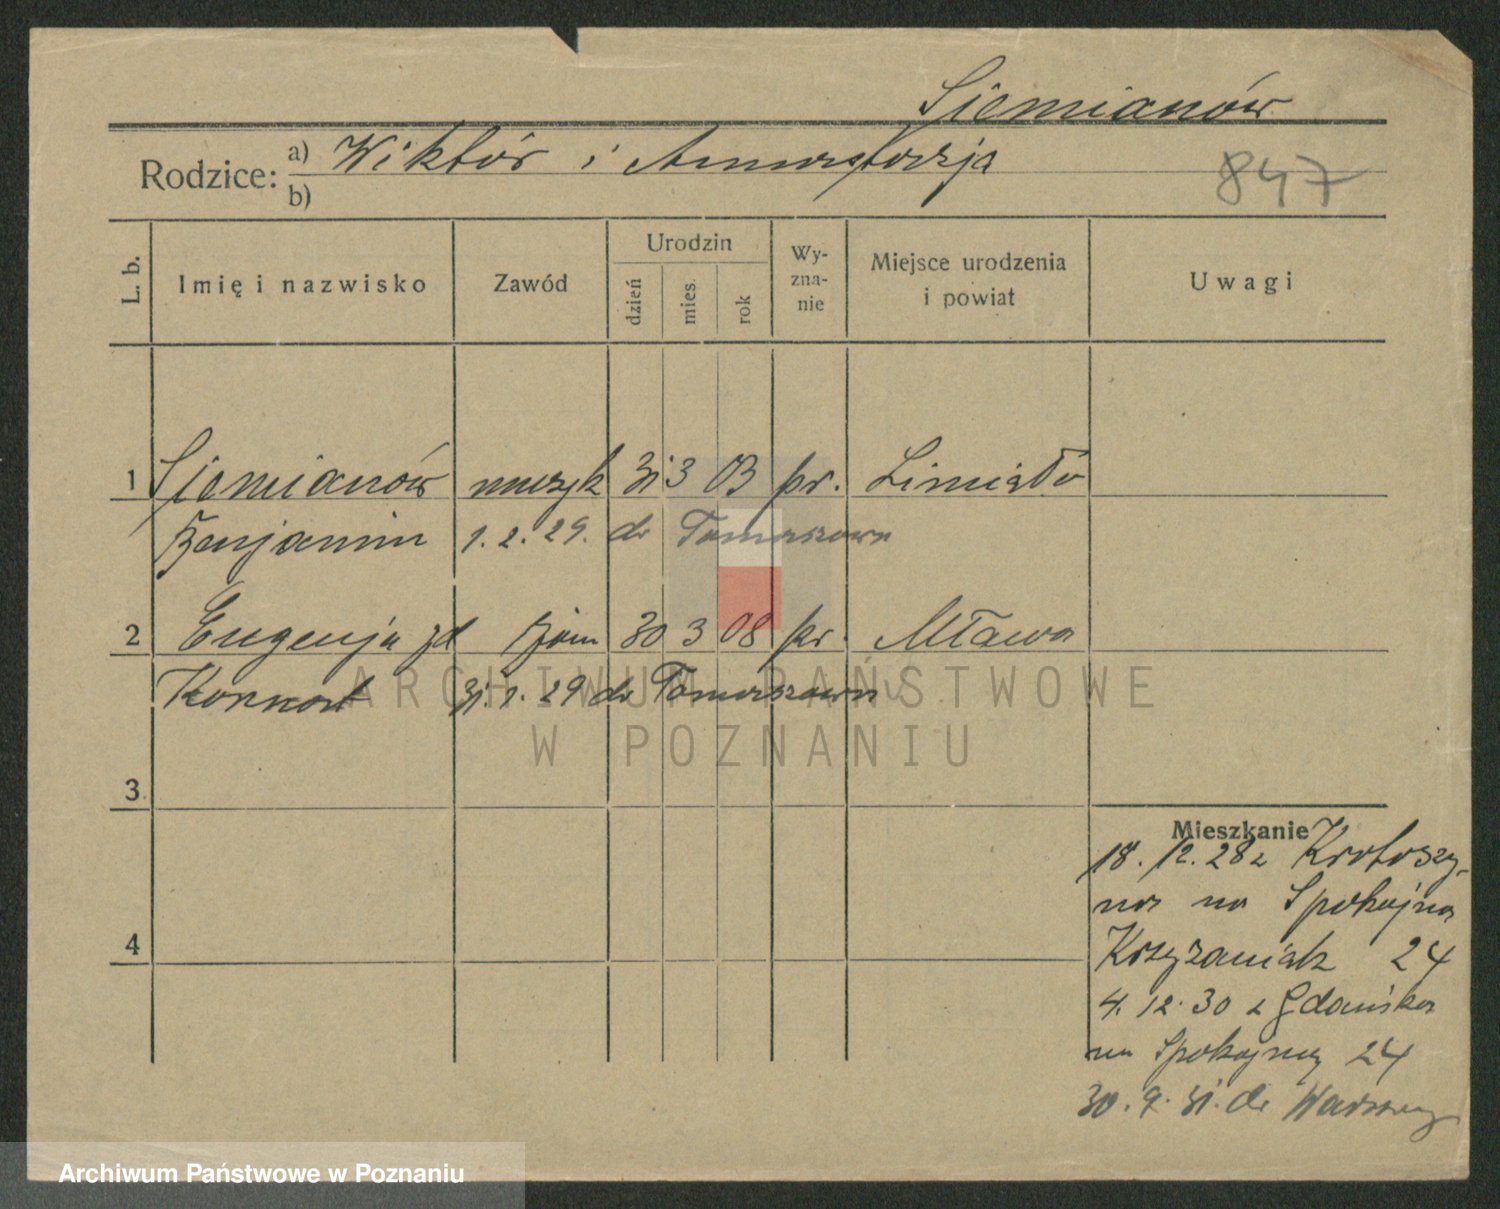 Siemianów
Rodzice: a) Wiktór i
b)
847
L. b. Imię i nazwisko Zawód Urodzin dzień mies. rok Wy-zna-nie Miejsce urodzenia i powiat Uwagi
1 Siemianów muzyk 31 3 03 pr.
Benjamin 1. 2. 29. do Tomaszowa
2 Eugenja zd 30 3 08 pr. Mława
31. 1. 29 do Tomaszowa
3
4
Mieszkanie
18. 12. 28 z Krotoszy-
na na Spokojna
Krzyżaniak 24
4. 12. 30 z Gdańska
na Spokojnej 24
30. 9. 31. do Warszawy
ARCHIWUM PAŃSTWOWE
W POZNANIU
Archiwum Państwowe w Poznaniu